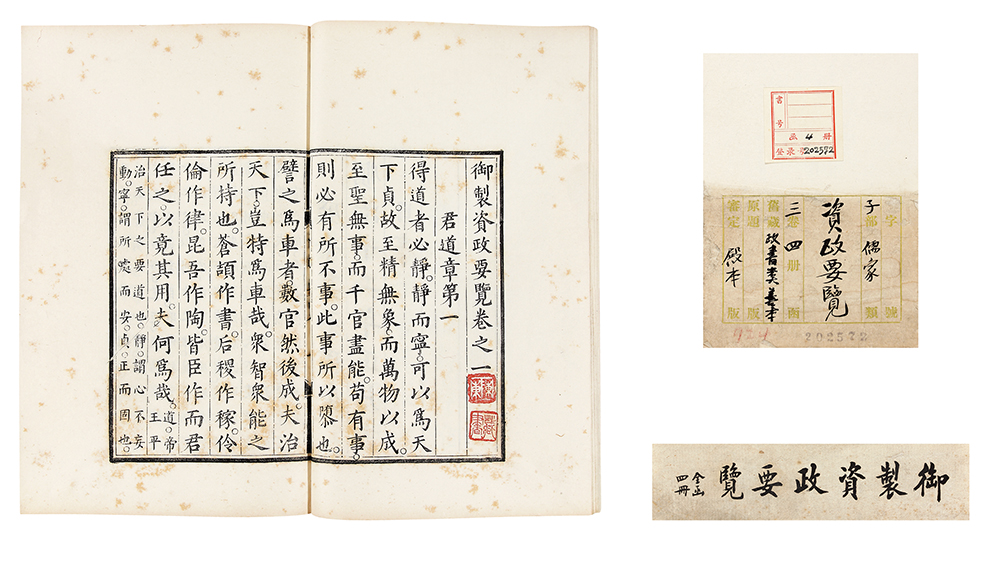 御製資政要覽卷之一
君道章第一
得道者必靜。靜而寧。可以爲天
下貞。故至精無象。而萬物以成。
至聖無事。而千官盡能。苟有事。
則必有所不事。此事所以隳也。
譬之爲車者。數官然後成。夫治
天下。豈特爲車哉。衆智衆能之
所持也。蒼頡作書。后稷作稼。伶
倫作律。昆吾作陶。皆臣作而君
任之。以竟其用。夫何爲哉。道。帝王平
治天下之要道也。靜。謂心不妄
動。寧。謂所處而安。貞。正而固也。
書号
函 4 册
登录号202592
字號
子部 儒家類
資政要覽
三卷 四册 函
舊藏 政書類善本
原題 版
審定 殿本 版
御製資政要覽
全函
四冊